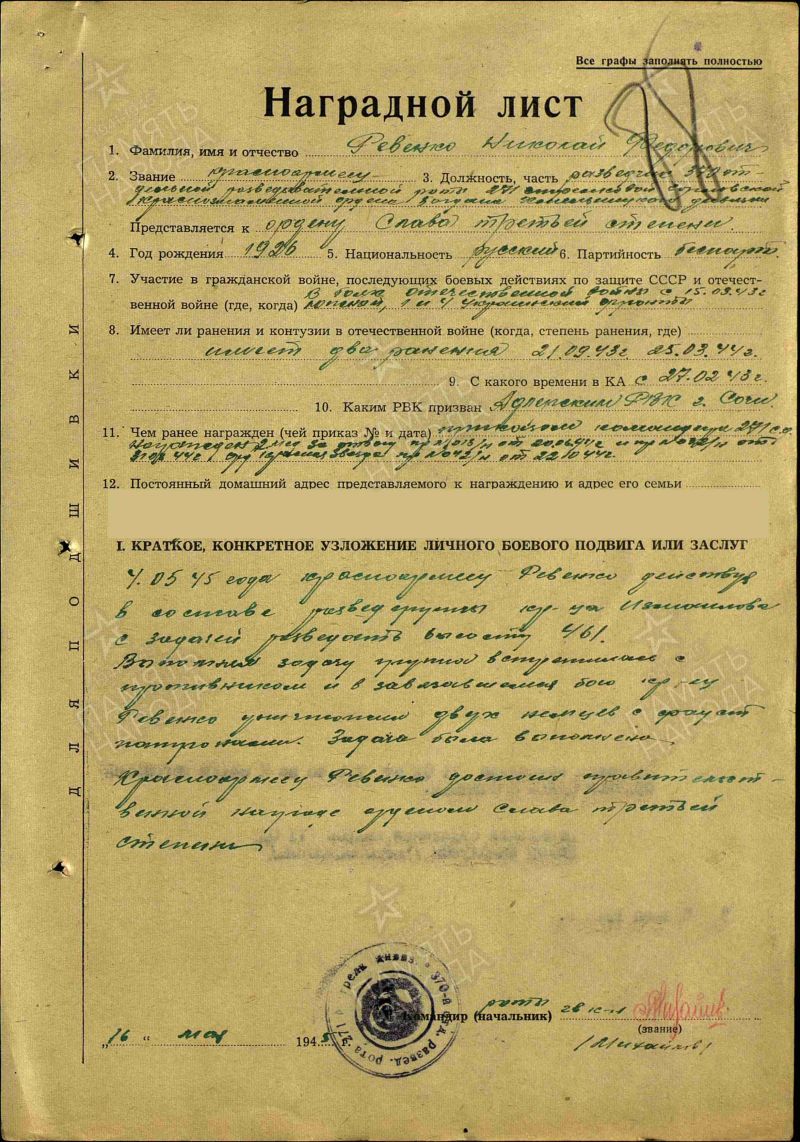 Все графы заполнять полностью
Наградной лист
1. Фамилия, имя и отчество Ревенко Николай Федорович
2. Звание красноармеец 3. Должность, часть разведчик 370 от-
дельной разведывательной роты 271 стрелковой Горловской
Краснознаменной ордена Богдана Хмельницкого дивизии
Представляется к ордену Слава третьей степени.
4. Год рождения 1926 5. Национальность русский 6. Партийность беспарт.
7. Участие в гражданской войне, последующих боевых действиях по защите СССР и отечест-
венной войне (где, когда) В Отечественной войне с 15.03.43г
1 и 4 Украинский фронты
8. Имеет ли ранения и контузии в отечественной войне (когда, степень ранения, где)
имеет два ранения 21.09.43г 25.03.44г.
9. С какого времени в КА с 27.02.43г.
10. Каким РВК призван Адлерским РВК г. Сочи
11. Чем ранее награжден (чей приказ № и дата) приказом командира 271 с.д.
Награжден за отвагу от и пр от
44г. Красная звезда пр №042/н от 22.10.44г.
12. Постоянный домашний адрес представляемого к награждению и адрес его семьи
I. КРАТКОЕ, КОНКРЕТНОЕ УЗЛОЖЕНИЕ ЛИЧНОГО БОЕВОГО ПОДВИГА ИЛИ ЗАСЛУГ
4.05.45 года красноармеец Ревенко действуя
в составе разведгруппы кр-ца Измаилова
с задачей разведать высоту 461.
Выполняя задачу группа встретилась с
противником и в завязавшемся бою кр-ец
Ревенко уничтожил двух немцев с фауст
патронами. Задача была выполнена.
Красноармеец Ревенко достоин правительст-
венной награде орденом Слава третьей
степени
Командир (начальник) роты гв к-н
(звание)
„16 “ мая 1945 г. /Михайлов/
ДЛЯ ПОДШИВКИ
ПАМЯТЬ НАРОДА